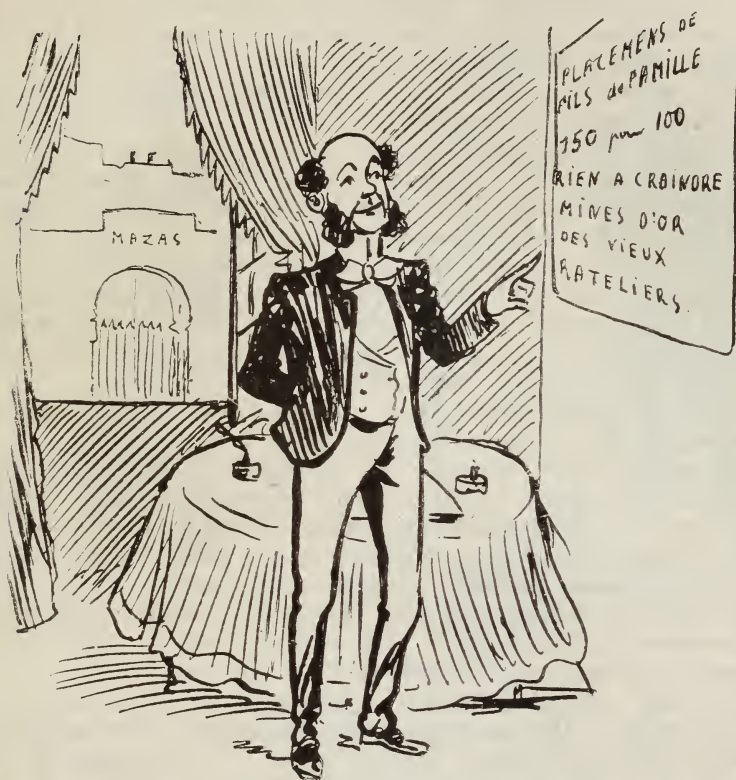 MAZAS
PLACEMENS DE
FILS de FAMILLE
150 pour 100
RIEN A CRAINDRE
MINES D'OR
DES VIEUX
RATELIERS.